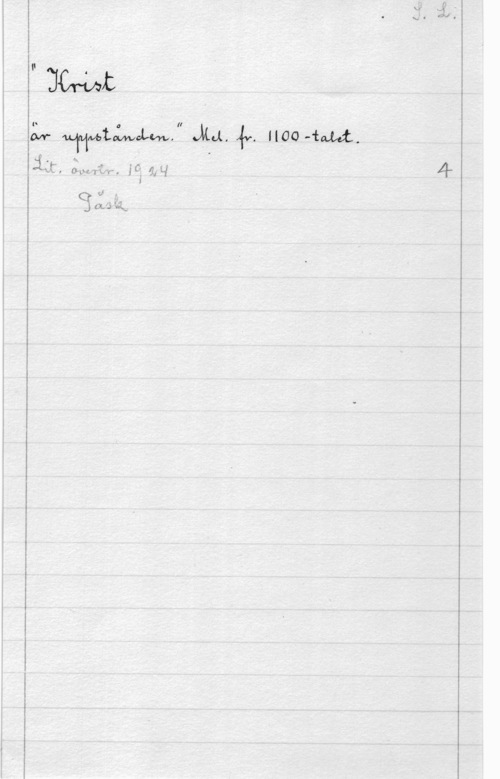 S. L.
" Krist
är uppstånden." Mel. fr. 1100-talet.
Lit. övertr. 1924 4
Påsk